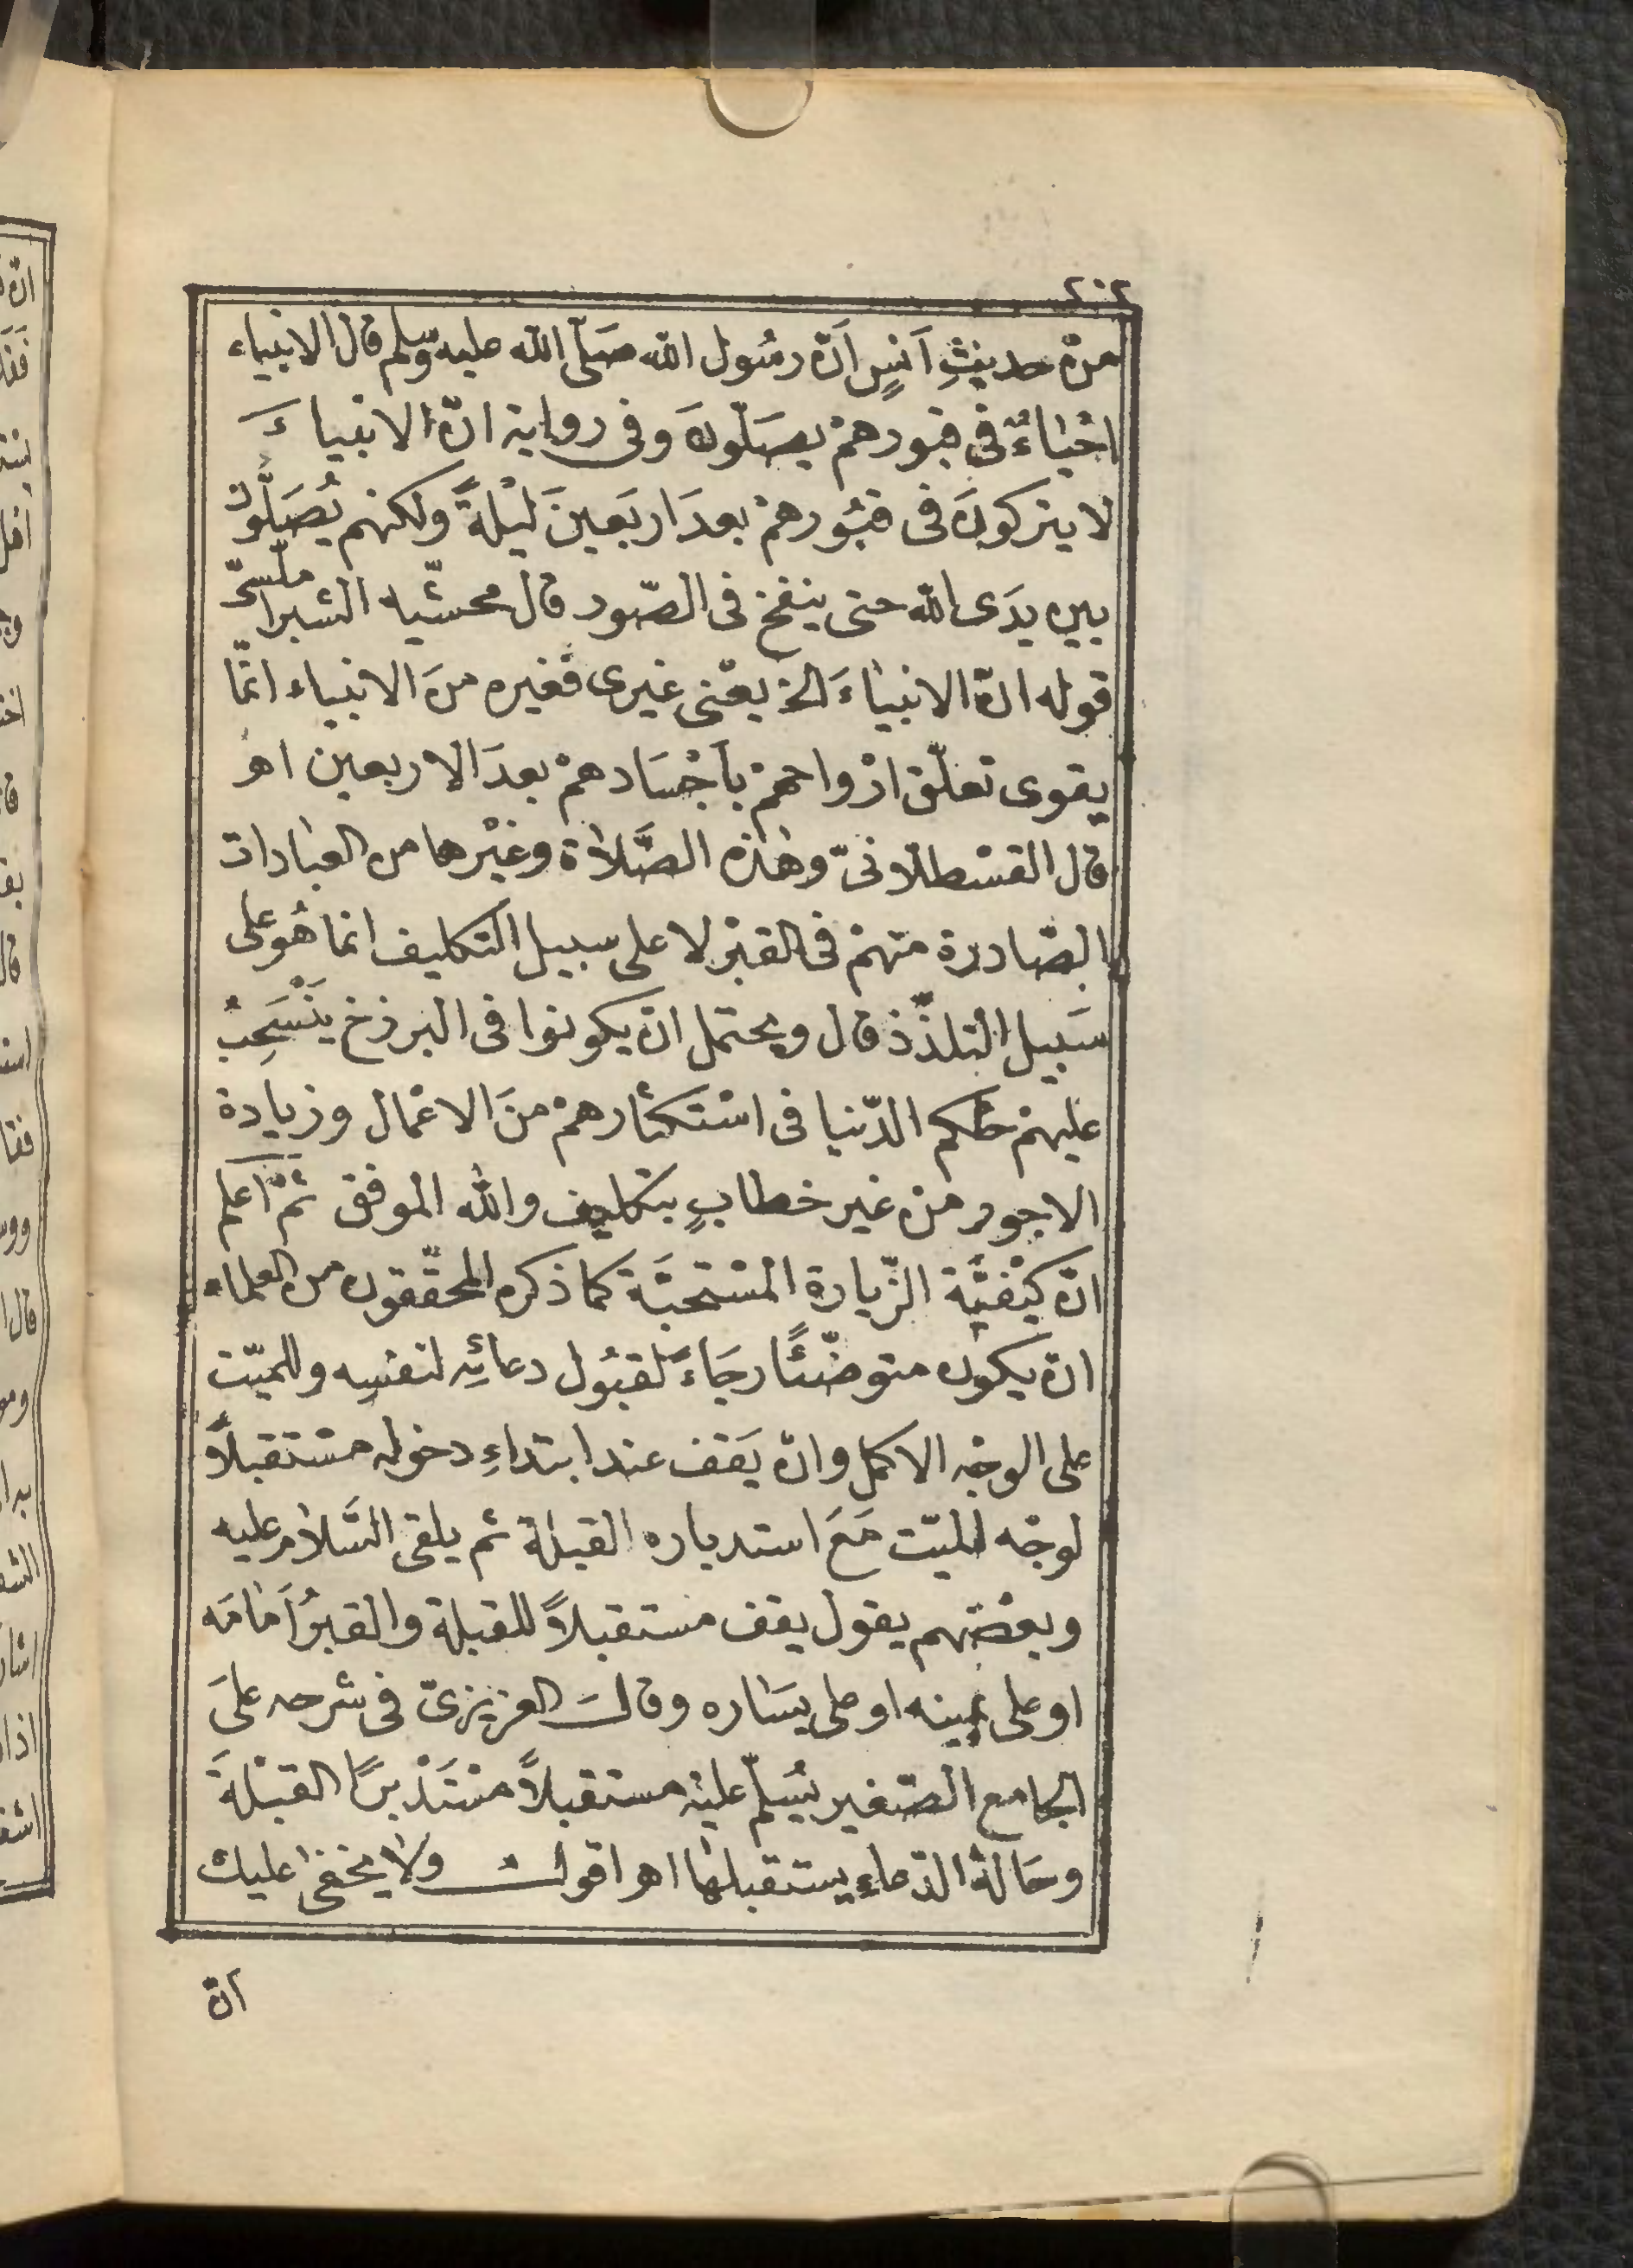 ٢٠٢
منْ حديثِ اَنسٍ اَنّ رسُول اللّه صَلّى اللّه عليه وسلم قال الانبياء
احْياءٌ فى قبورهمْ يصَلّونَ وفى رواية انّ الانبياءَ
لا يتركونَ فى قبُورهمْ بعدَ اربَعينَ ليْلةً ولكنهم يُصَلُّونَ
بين يدَى اللّه حتى ينفخ فى الصّور قال محشّيه الشبراملسىّ
قوله انّ الانبياءَ الخ يعْنى غيرى فغيره منَ الانبياء انّما
يقوى تعلّق ارْواحهمْ بأجْسَادهمْ بعدَ الاربعين اهـ
قال القسْطلّانىّ وهٰذه الصَّلاة وغيْرها من العبادات
الصّادرة منهمْ فى القبْر لا على سبيل التكليف انما هُو على
سَبيل التلذّذ قال ويحتمل انْ يكونوا فى البرزخ ينْسَحِبُ
عليهمْ حكم الدّنيا فى اسْتكثارهمْ منَ الاعْمال وزيادة
الاجور منْ غير خطابٍ بتكليف واللّه الموفق ثمَّ اعلم
انّ كيْفيَّة الزّيارة المسْتحبَّة كما ذكره المحقّقون من العلماء
انْ يكون متوضّئًا رجَاءً لقبُول دعائِه لنفسِه وللميّت
على الوجْه الاكمل وانْ يَقف عند ابتداءِ دخوله مسْتقبلاً
لوجْه الميّت مَعَ استدباره القبلة ثم يلقى السَّلام عليه
وبعْضهم يقول يقف مستقبلاً للقبلة والقبرُ اَمامَه
او على يمينه او على يسَاره وقالَ العزيزىّ فى شرحه علىَ
الجامع الصّغير يُسَلّم عليْه مستقبلاً مسْتَدْبرًا القبْلةَ
وحَالة الدّعاءِ يستقبلها اهـ اقول ولا يخفى عليك
انّ